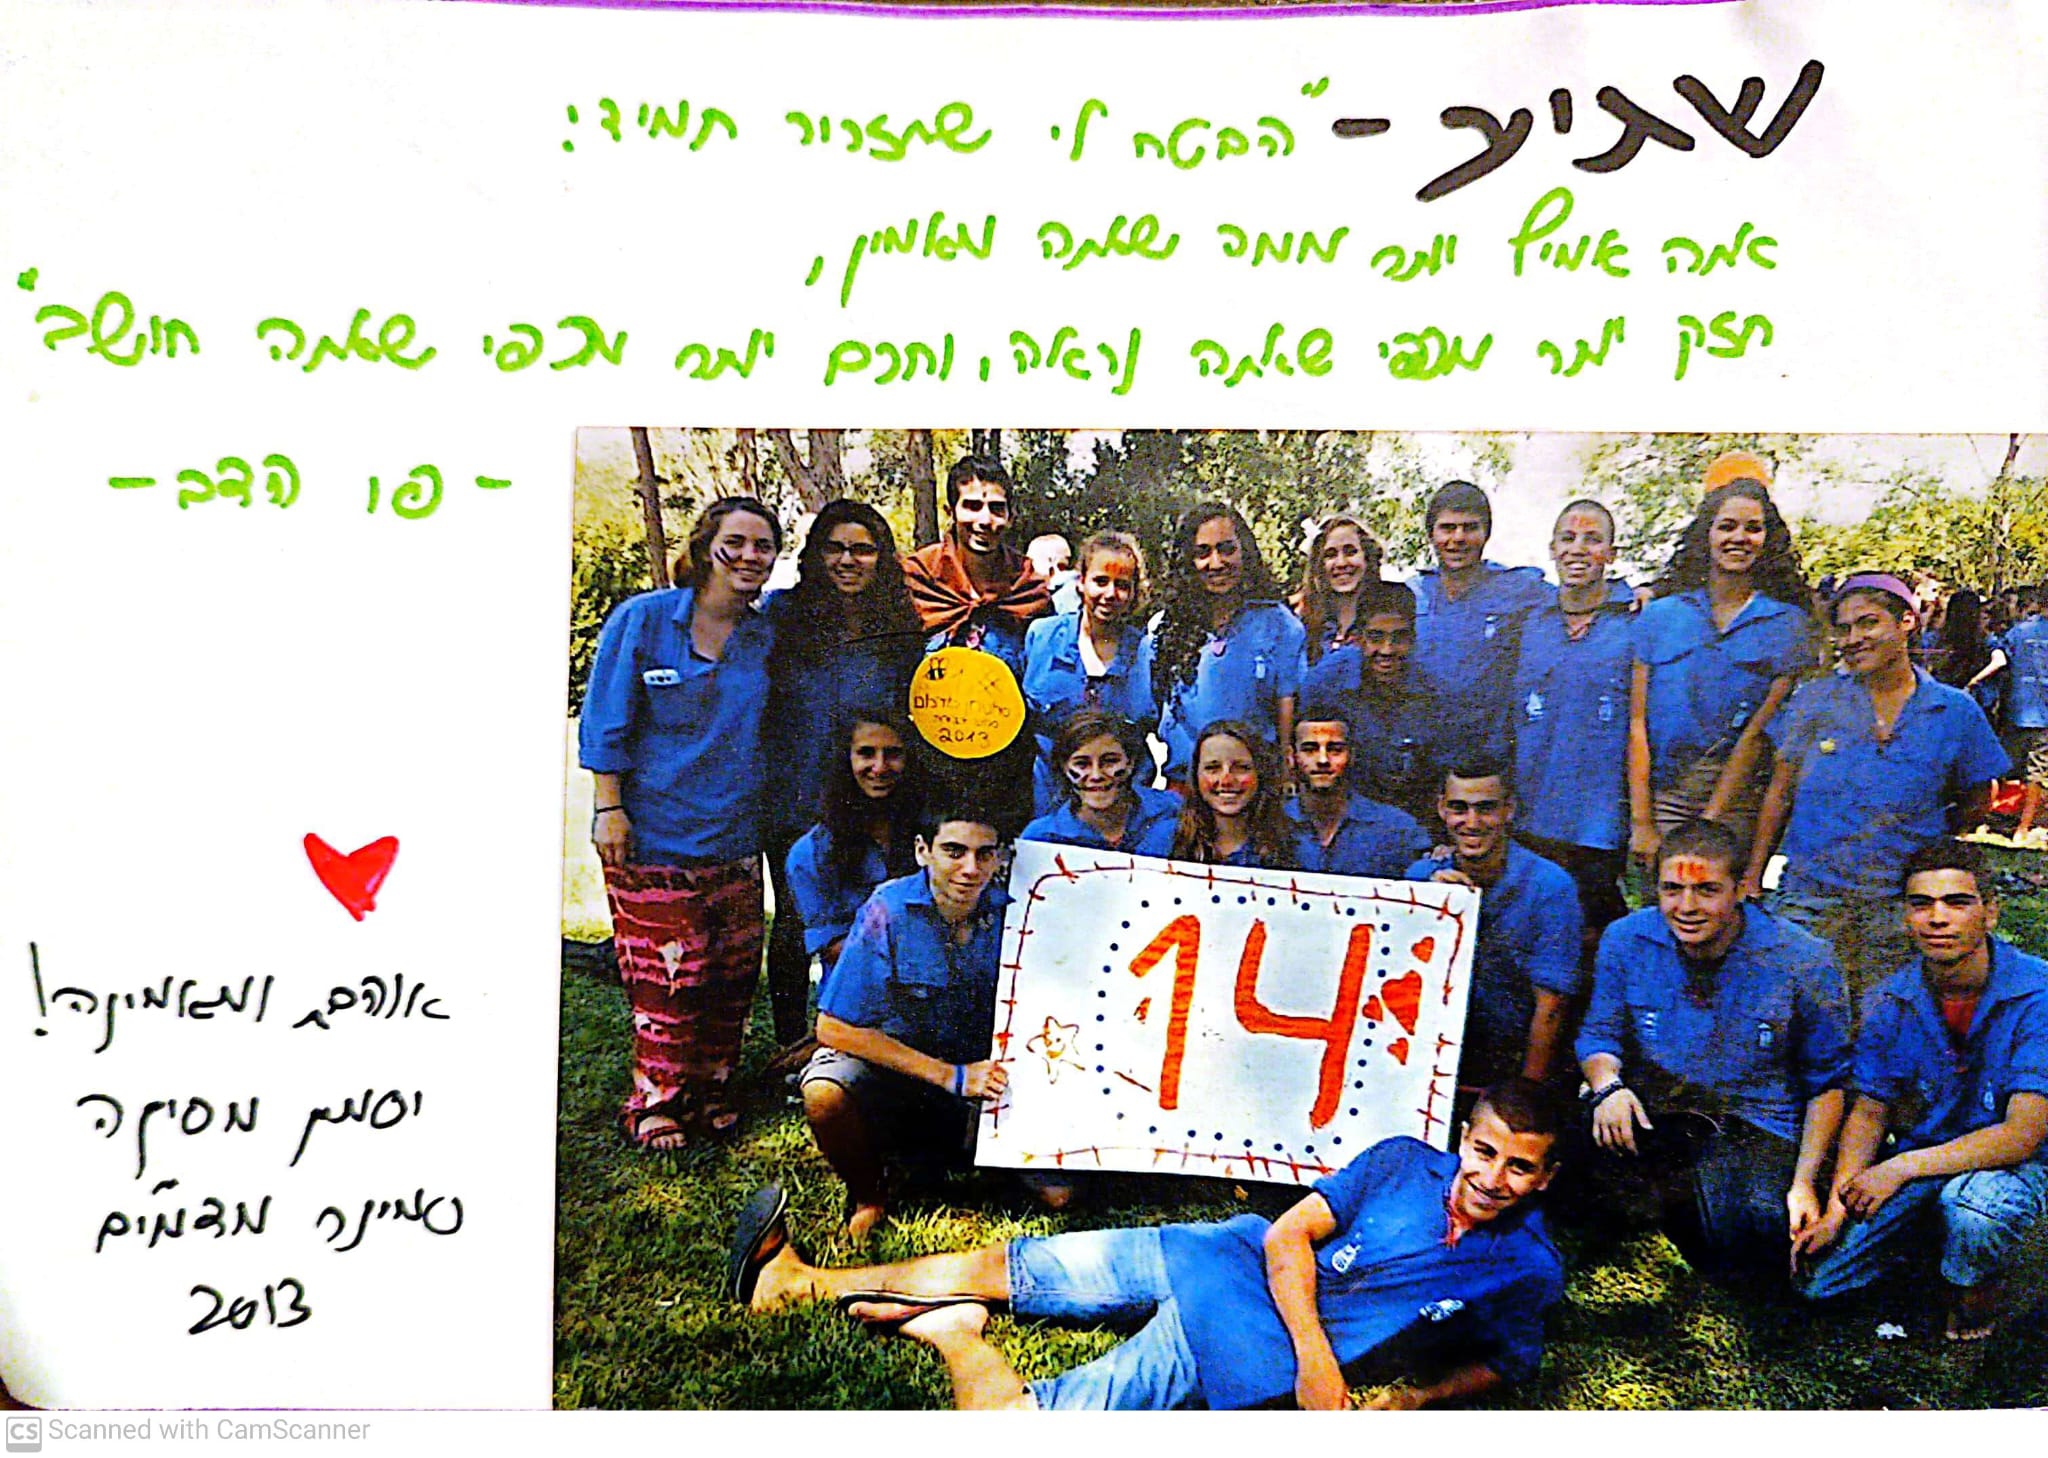 שתיע - "הבטח לי שתזכור תמיד:
אתה אמיץ יותר ממה שאתה מאמין,
חזק יותר מכפי שאתה נראה, וחכם יותר מכפי שאתה חושב"
- פו הדב -
2013
14
אוהבת ומאמינה!
יסמין מסיקה
סמינר מד"מים
2013
CS Scanned with CamScanner